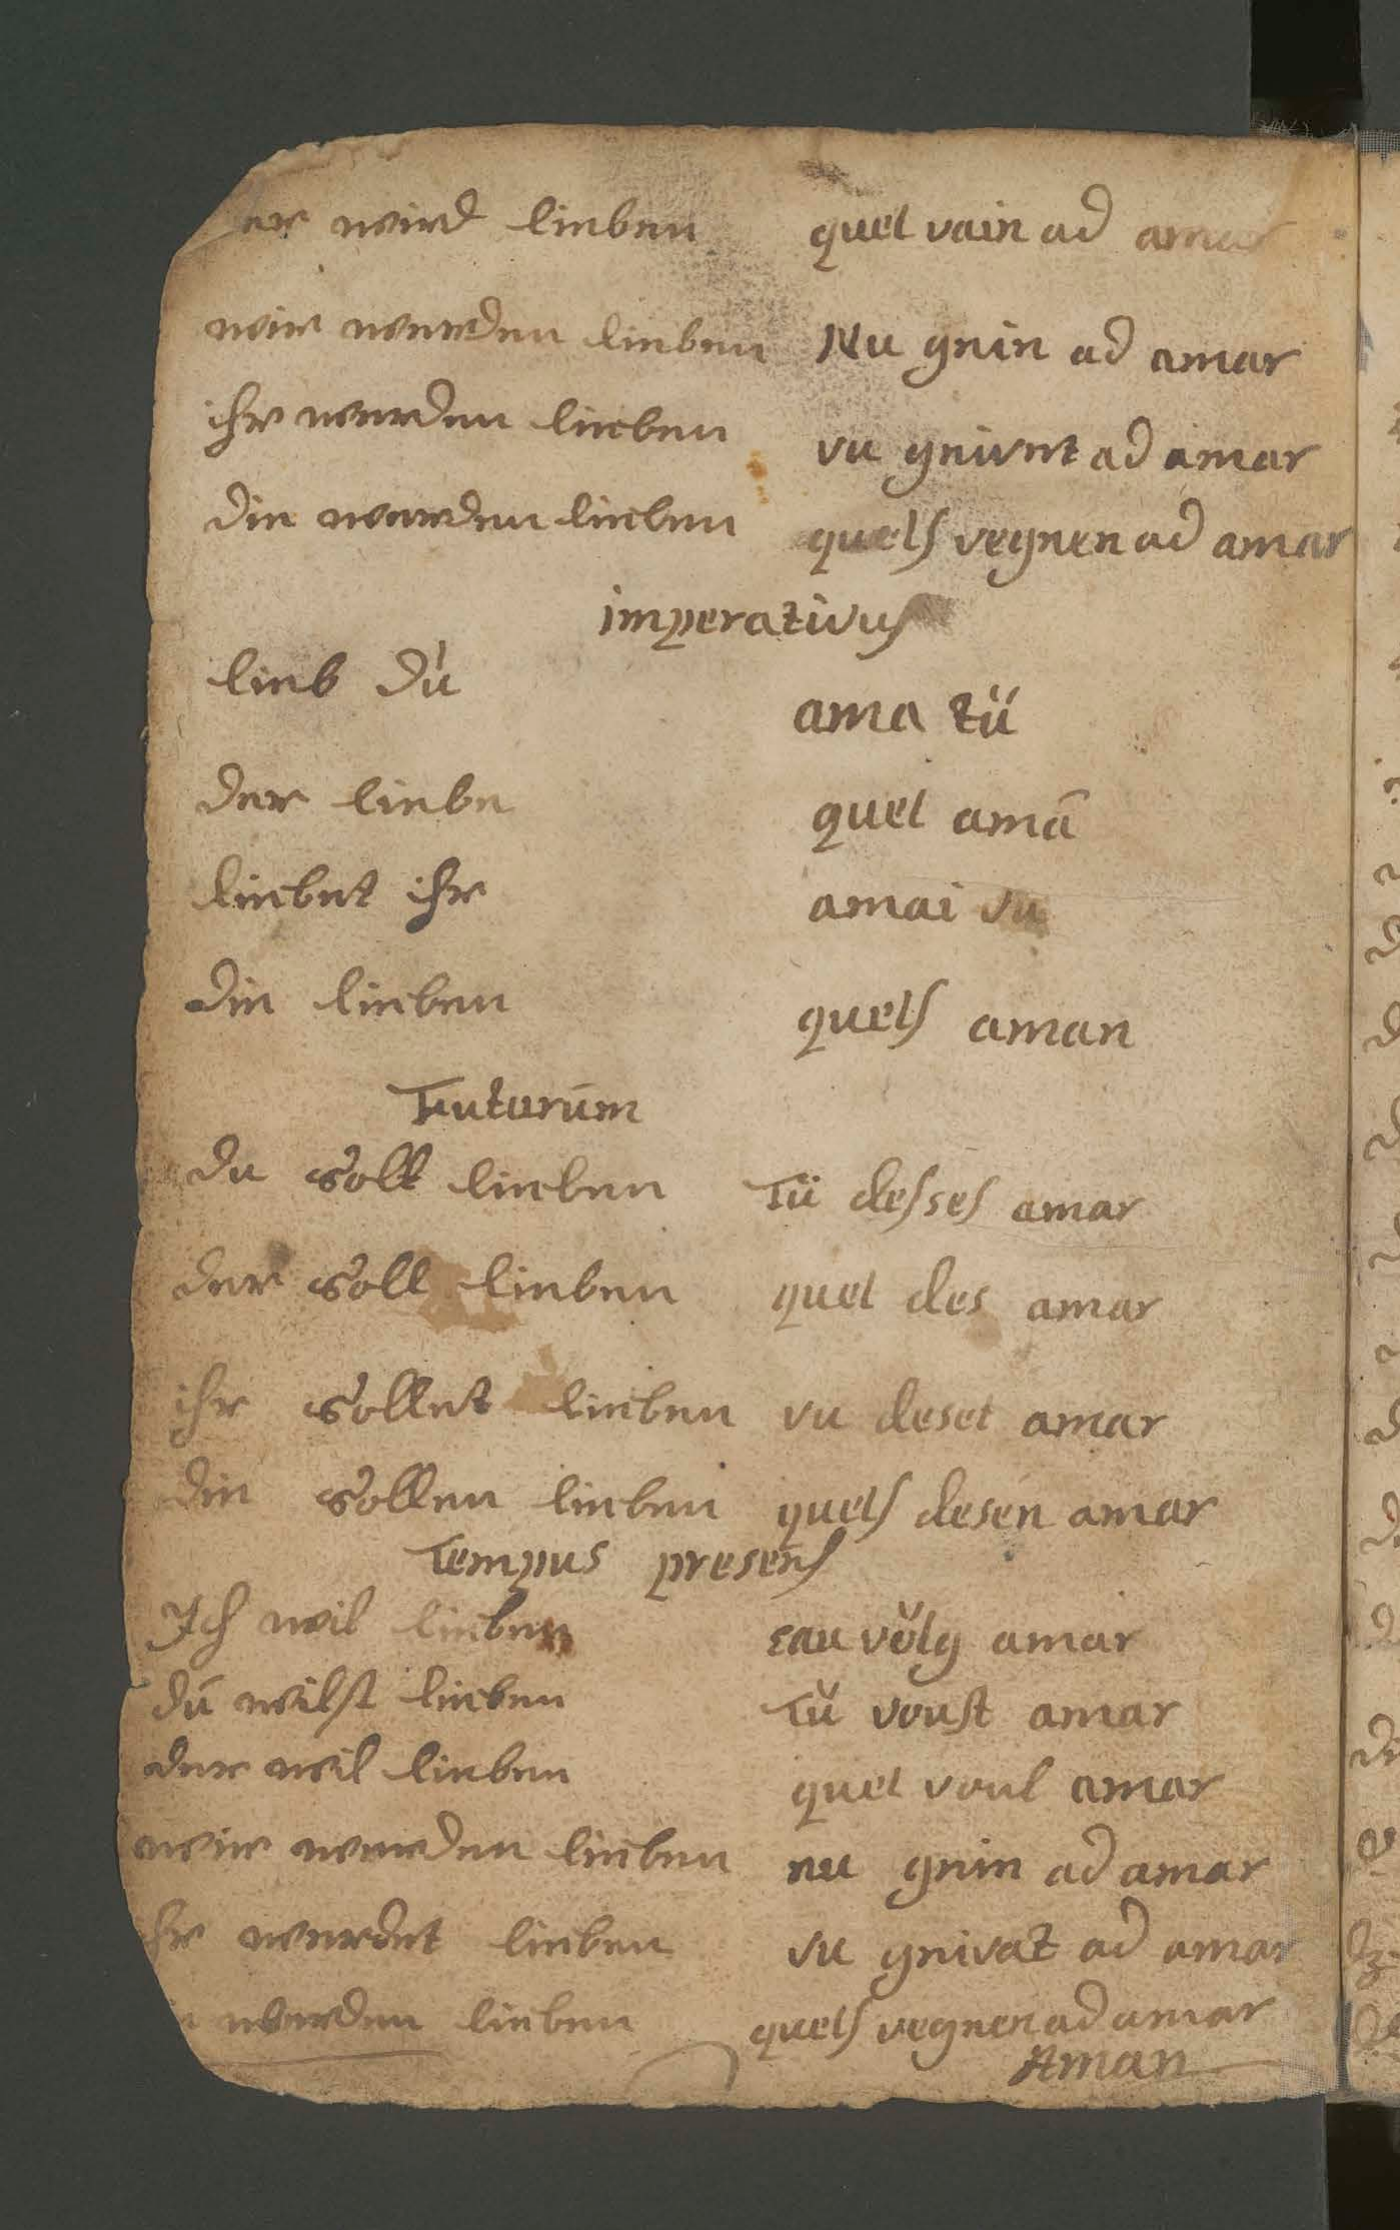 er wird lieben quel vain ad amar
wir werden lieben Nu gnin ad amar
ihr werden lieben vu gnivet ad amar
die werden lieben quels vegnen ad amar
imperativus
lieb dú ama tü
der liebe quel amā
liebet ihr amai vu
die lieben quels aman
Futurum
du solt lieben Tü desses amar
der soll lieben quel des amar
ihr sollet lieben vu deset amar
die sollen lieben quels desen amar
Tempus presens
Ich wil lieben eau vŏlg amar
dŭ wilst lieben Tŭ voust amar
der wil lieben quel voul amar
wir werden lieben nu gnin ad amar
hr werdet lieben vu gnivat ad amar
werden lieben quels vegnen ad amar
Aman